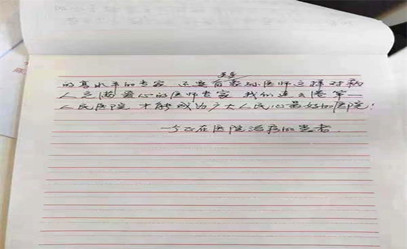 的高水平的专家 还要有袁弘医师这样对病
人充满爱心的医师专家 我们连云港军
人民医院 才能成为广大人民心最好的医院!
一个正在医院治疗的患者